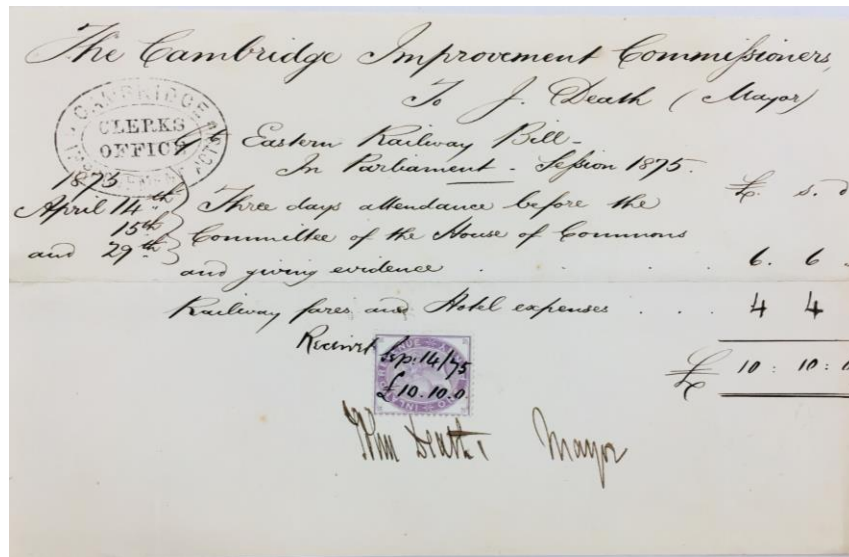 The Cambridge Improvement Commissioners,
To J. Death (Mayor)
CAMBRIDGE
CLERKS
OFFICE
IMPROVEMENT ACTS
Gt. Eastern Railway Bill -
In Parliament - Session 1875.
£. s. d
1875
April 14th
15th
and 29th
Three days attendance before the
Committee of the House of Commons
and giving evidence . . . . . . 6. 6
Railway fares and Hotel expenses . . . 4 4
Received
INLAND REVENUE
Sep: 14/75
£10.10.0
£ 10 : 10 : 0
John Death Mayor